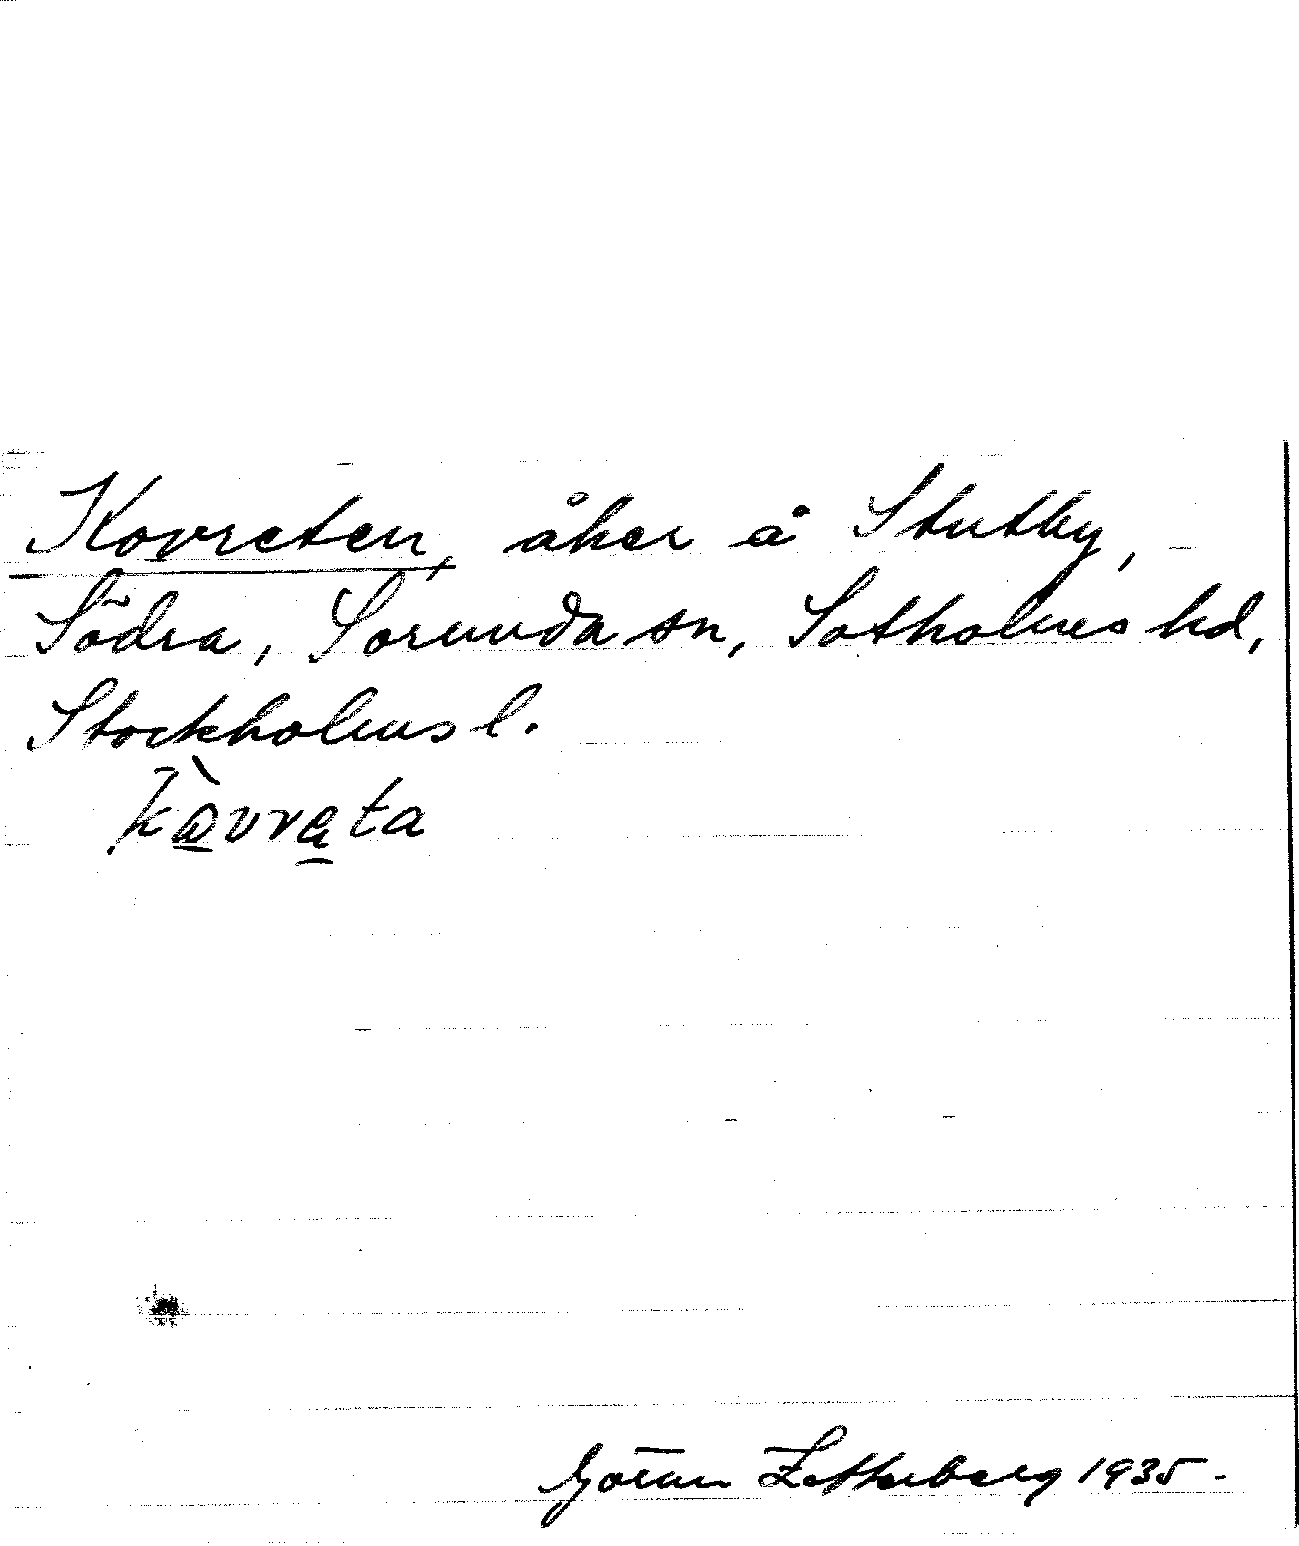 Kovreten, åker å Stutby,
Södra, Sorunda sn, Sotholms hd,
Stockholms l.
kàvreta
Göran Zetterberg 1935.